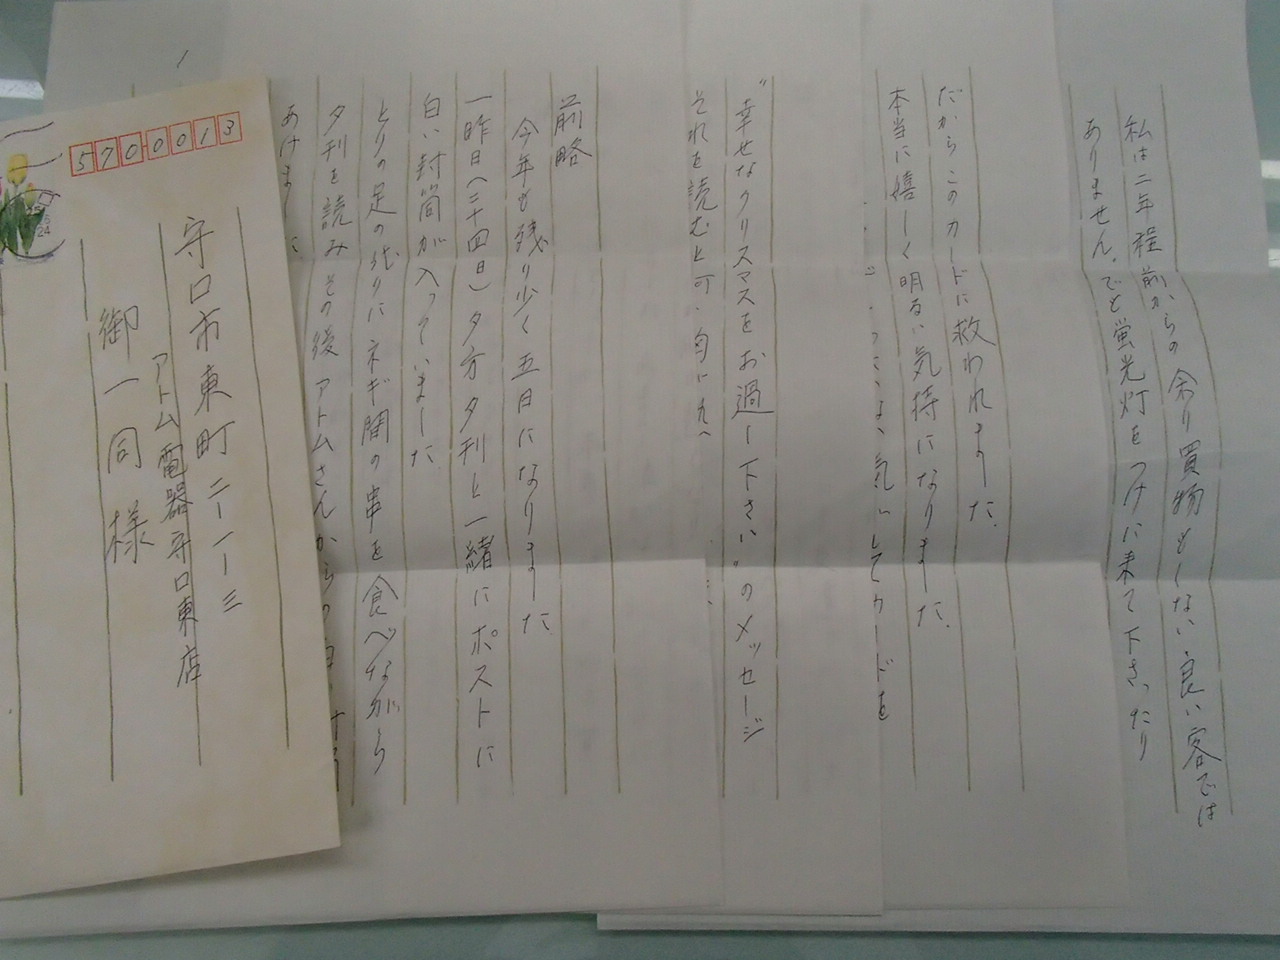 私は二年程前からの余り買物をしない良い客では
ありません。でも蛍光灯をつけに来て下さったり
だからこのカードに救われました.
本当に嬉しく明るい気持になりました.
気がしてカードを
"幸せなクリスマスをお過し下さい"のメッセージ
それを読むと
前略
今年も残り少く五日になりました
一昨日(二十四日)夕方夕刊と一緒にポストに
白い封筒が入っていました
とりの足の代りにネギ間の串を食べながら
夕刊を読みその後アトムさんからの
あけました
5700013
守口市東町二-一-三
アトム電器守口東店
御一同様